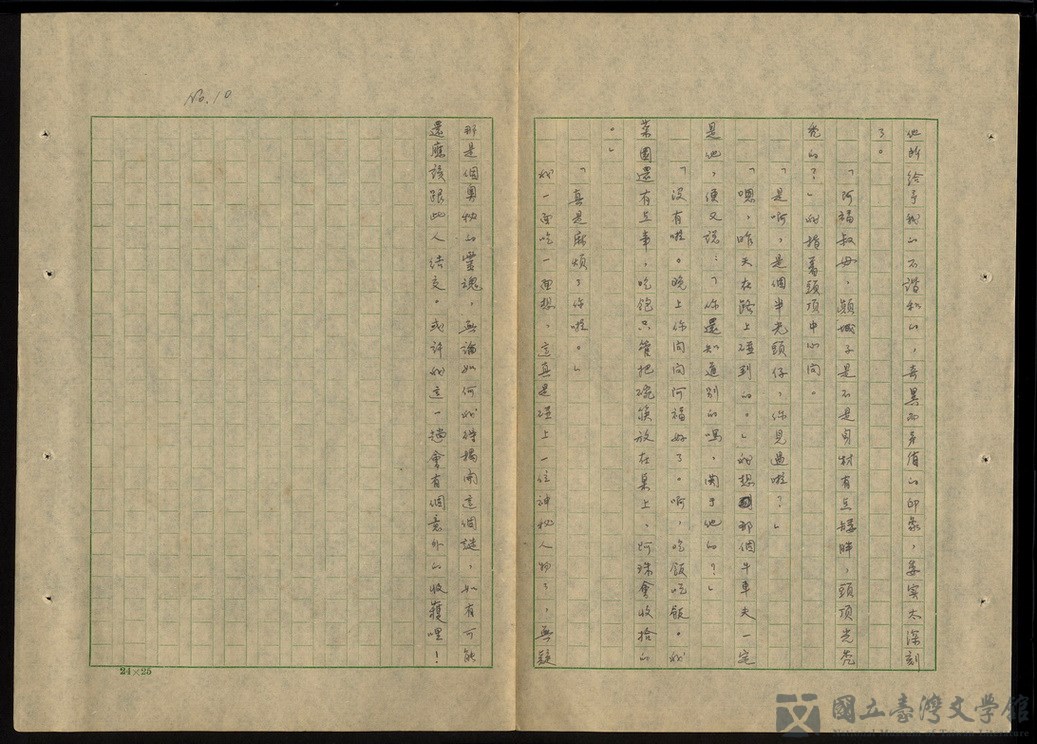 他所給予我的不諧和的，奇異而矛盾的印象，委實太深刻
了。
「阿福叔母，顛城子是不是身材有些矮胖，頭頂光禿
禿的？」我指著頭頂中心問。
「是啊，是個半光頭仔，你見過啦？」
「嗯，昨天在路上碰到的。」我想那個牛車夫一定
是他，便又說：「你還知道別的嗎，關于他的？」
「沒有啦。晚上你問問阿福好了。啊，吃飯吃飯。我
菜園還有些事，吃飽只管把碗筷放在桌上，阿珠會收拾的
。」
「真是麻煩了你啦。」
我一面吃一面想，這真是碰上一位神秘人物了，無疑
No.10
那是個奧秘的靈魂，無論如何我得揭開這個謎，如有可能
還應該跟此人結交。或許我這一趟會有個意外的收穫哩！
24×25
國立臺灣文學館
National Museum of Taiwan Literature